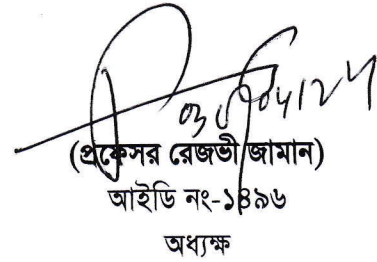 (প্রফেসর রেজভী জামান)
আইডি নং-১৪৯৬
অধ্যক্ষ